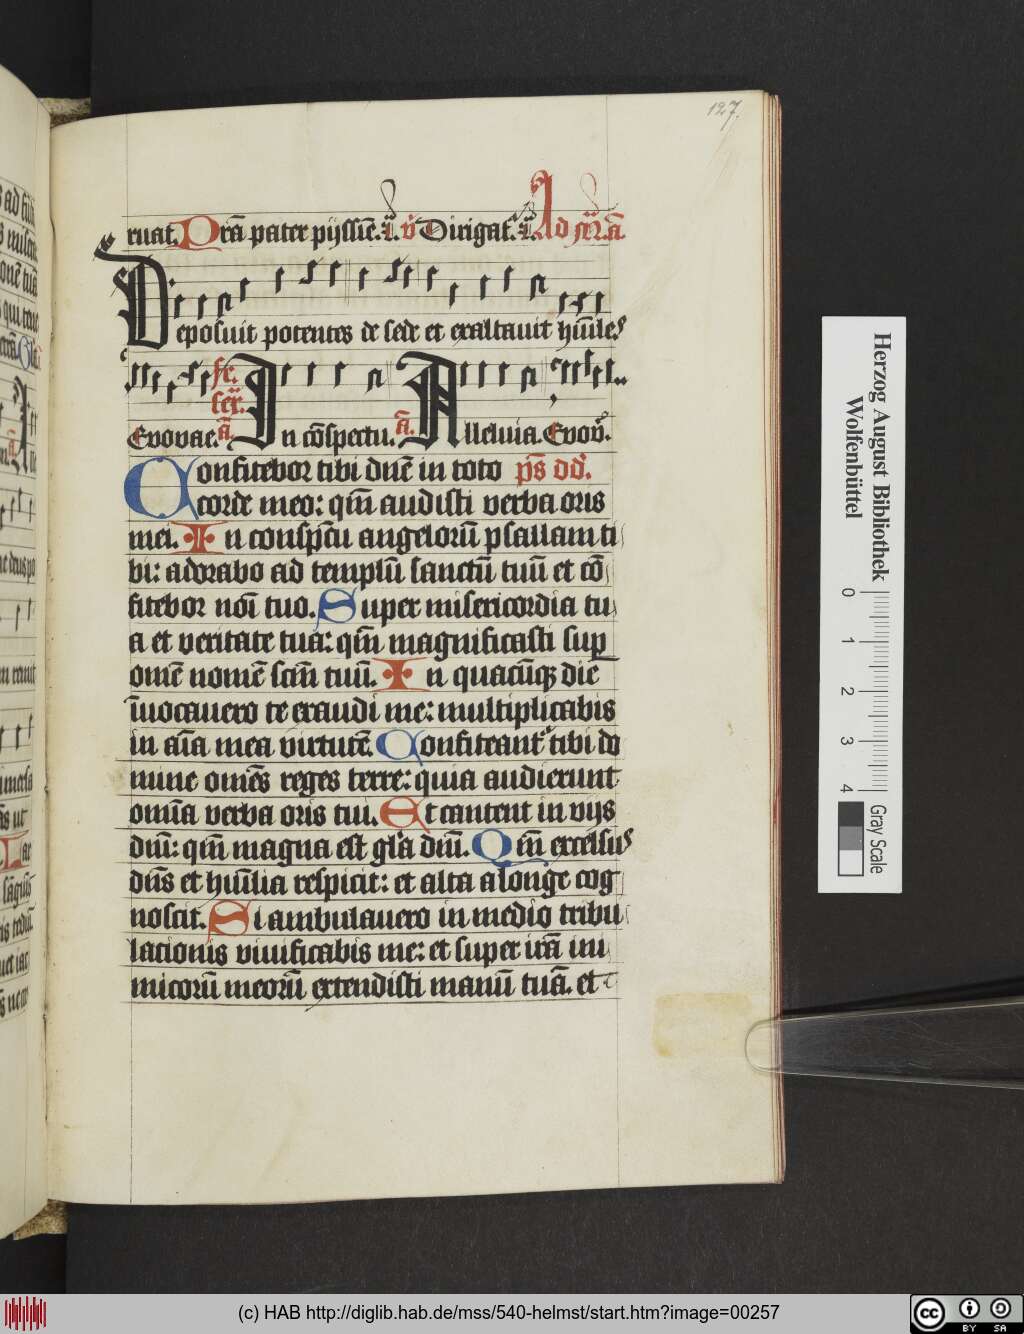 127
ruat. Prā pater pijssīē. r̄. v̄ Dirigat. r̄. Ad fer̄. ā
Deposuit potentes de sede et exaltauit hūīles
fe.
ser̄.
Euouae. ā. In cōspectu. ā. Alleluia. Euoū.
Confitebor tibi dnē in toto ps̄ dd̄.
corde meo: qm̄ audisti verba oris
mei. In conspc̄tu angelorū psallam ti
bi: adorabo ad templū sanctū tuū et cō
fitebor noī tuo. Super misericordia tu
a et veritate tua: qm̄ magnificasti sup
omē nomē scm̄ tuū. In quacūqꝫ die
īuocauero te exaudi me: multiplicabis
in aīa mea virtutē. Confiteant᷑ tibi do
mine omēs reges terre: quia audierunt
omīa verba oris tui. Et cantent in vijs
dnī: qm̄ magna est glā dnī. Qm̄ excelsus
dns̄ et hūīlia respicit: et alta a longe cog
noscit. Si ambulauero in medio tribu
lacionis viuificabis me: et super irā ini
micorū meorū extendisti manū tuā. et
Herzog August Bibliothek
Wolfenbüttel
0 1 2 3 4
Gray Scale
(c) HAB http://diglib.hab.de/mss/540-helmst/start.htm?image=00257
cc BY SA